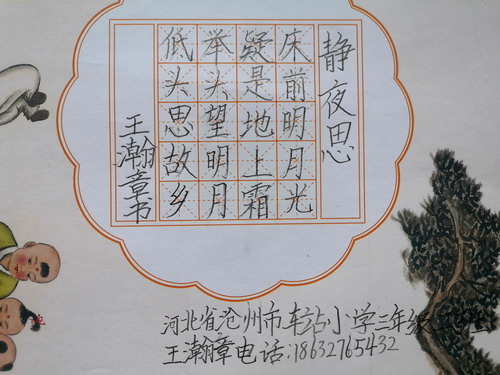 静夜思
床前明月光
疑是地上霜
举头望明月
低头思故乡
王瀚章书
河北省沧州市车站小学三年级
王瀚章电话:18632765432